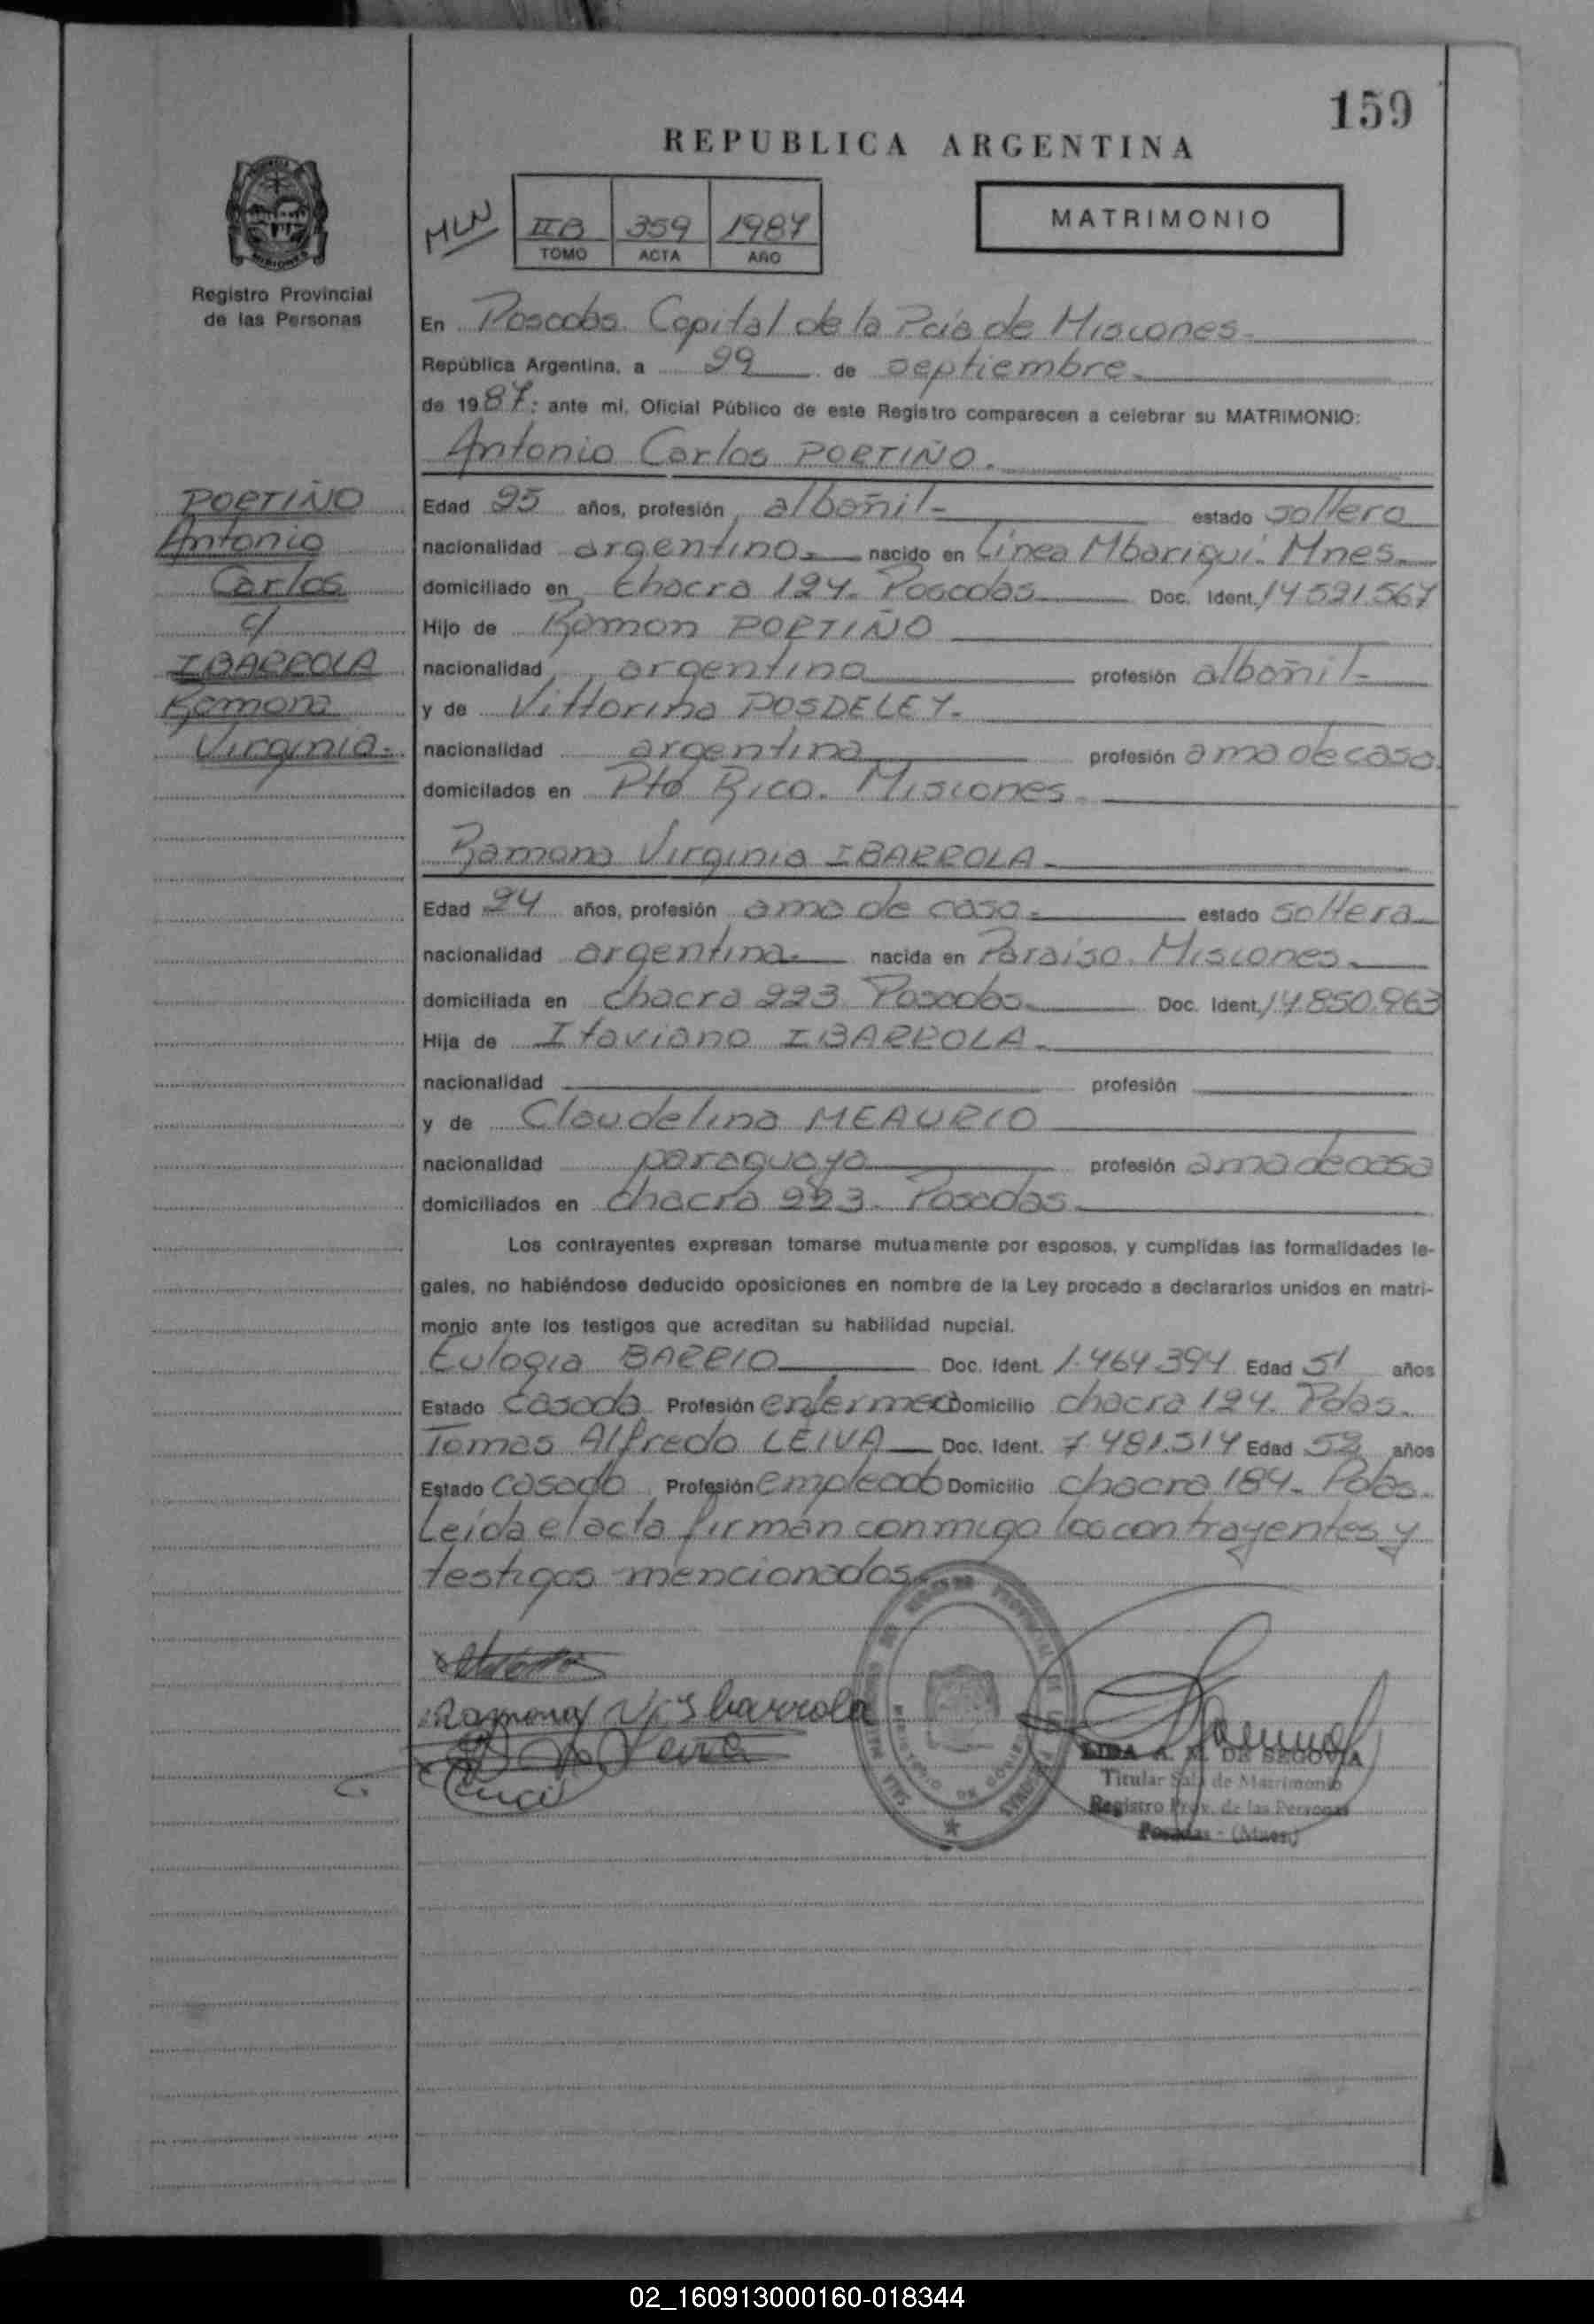 159
REPUBLICA ARGENTINA
MLN
IIB 359 1987
TOMO ACTA AÑO
MATRIMONIO
Registro Provincial
de las Personas
En Posadas. Capital de la Pcia de Misiones.
República Argentina, a 29 de septiembre.
de 1987: ante mi, Oficial Público de este Registro comparecen a celebrar su MATRIMONIO:
Antonio Carlos PORTIÑO.
PORTIÑO
Antonio
Carlos
c/
IBARROLA
Ramona
Virginia.
Edad 25 años, profesión albañil- estado soltero
nacionalidad argentino. nacido en Linea Mbarigui. Mnes.
domiciliado en Chacra 124. Posadas Doc. Ident. 14.521.567
Hijo de Ramon PORTIÑO
nacionalidad argentina profesión albañil-
y de Vittorina POSDELEY.
nacionalidad argentina profesión ama de casa.
domicilados en Pto Rico. Misiones.
Ramona Virginia IBARROLA.
Edad 24 años, profesión ama de casa. estado soltera
nacionalidad argentina. nacida en Paraiso. Misiones.
domiciliada en chacra 223. Posadas. Doc. Ident. 14.850.963
Hija de Itaviano IBARROLA.
nacionalidad profesión
y de Claudelina MEAURIO
nacionalidad paraguaya profesión ama de casa
domiciliados en chacra 223. Posadas.
Los contrayentes expresan tomarse mutuamente por esposos, y cumplidas las formalidades le-
gales, no habiéndose deducido oposiciones en nombre de la Ley procedo a declararlos unidos en matri-
monio ante los testigos que acreditan su habilidad nupcial.
Eulogia BARRIO Doc. Ident. 1.464.394 Edad 51 años
Estado casada Profesión enfermera Domicilio chacra 124. Pdas.
Tomas Alfredo LEIVA Doc. Ident. 7.481.514 Edad 52 años
Estado casado Profesión empleado Domicilio chacra 184. Pdas.
Leida el acta firman conmigo los contrayentes y
testigos mencionados.
Ramona V. Ibarrola
Leiva
LIDA A. M. DE SEGOVIA
Titular Sala de Matrimonio
Registro Prov. de las Personas
Posadas - (Mnes.)
02_160913000160-018344